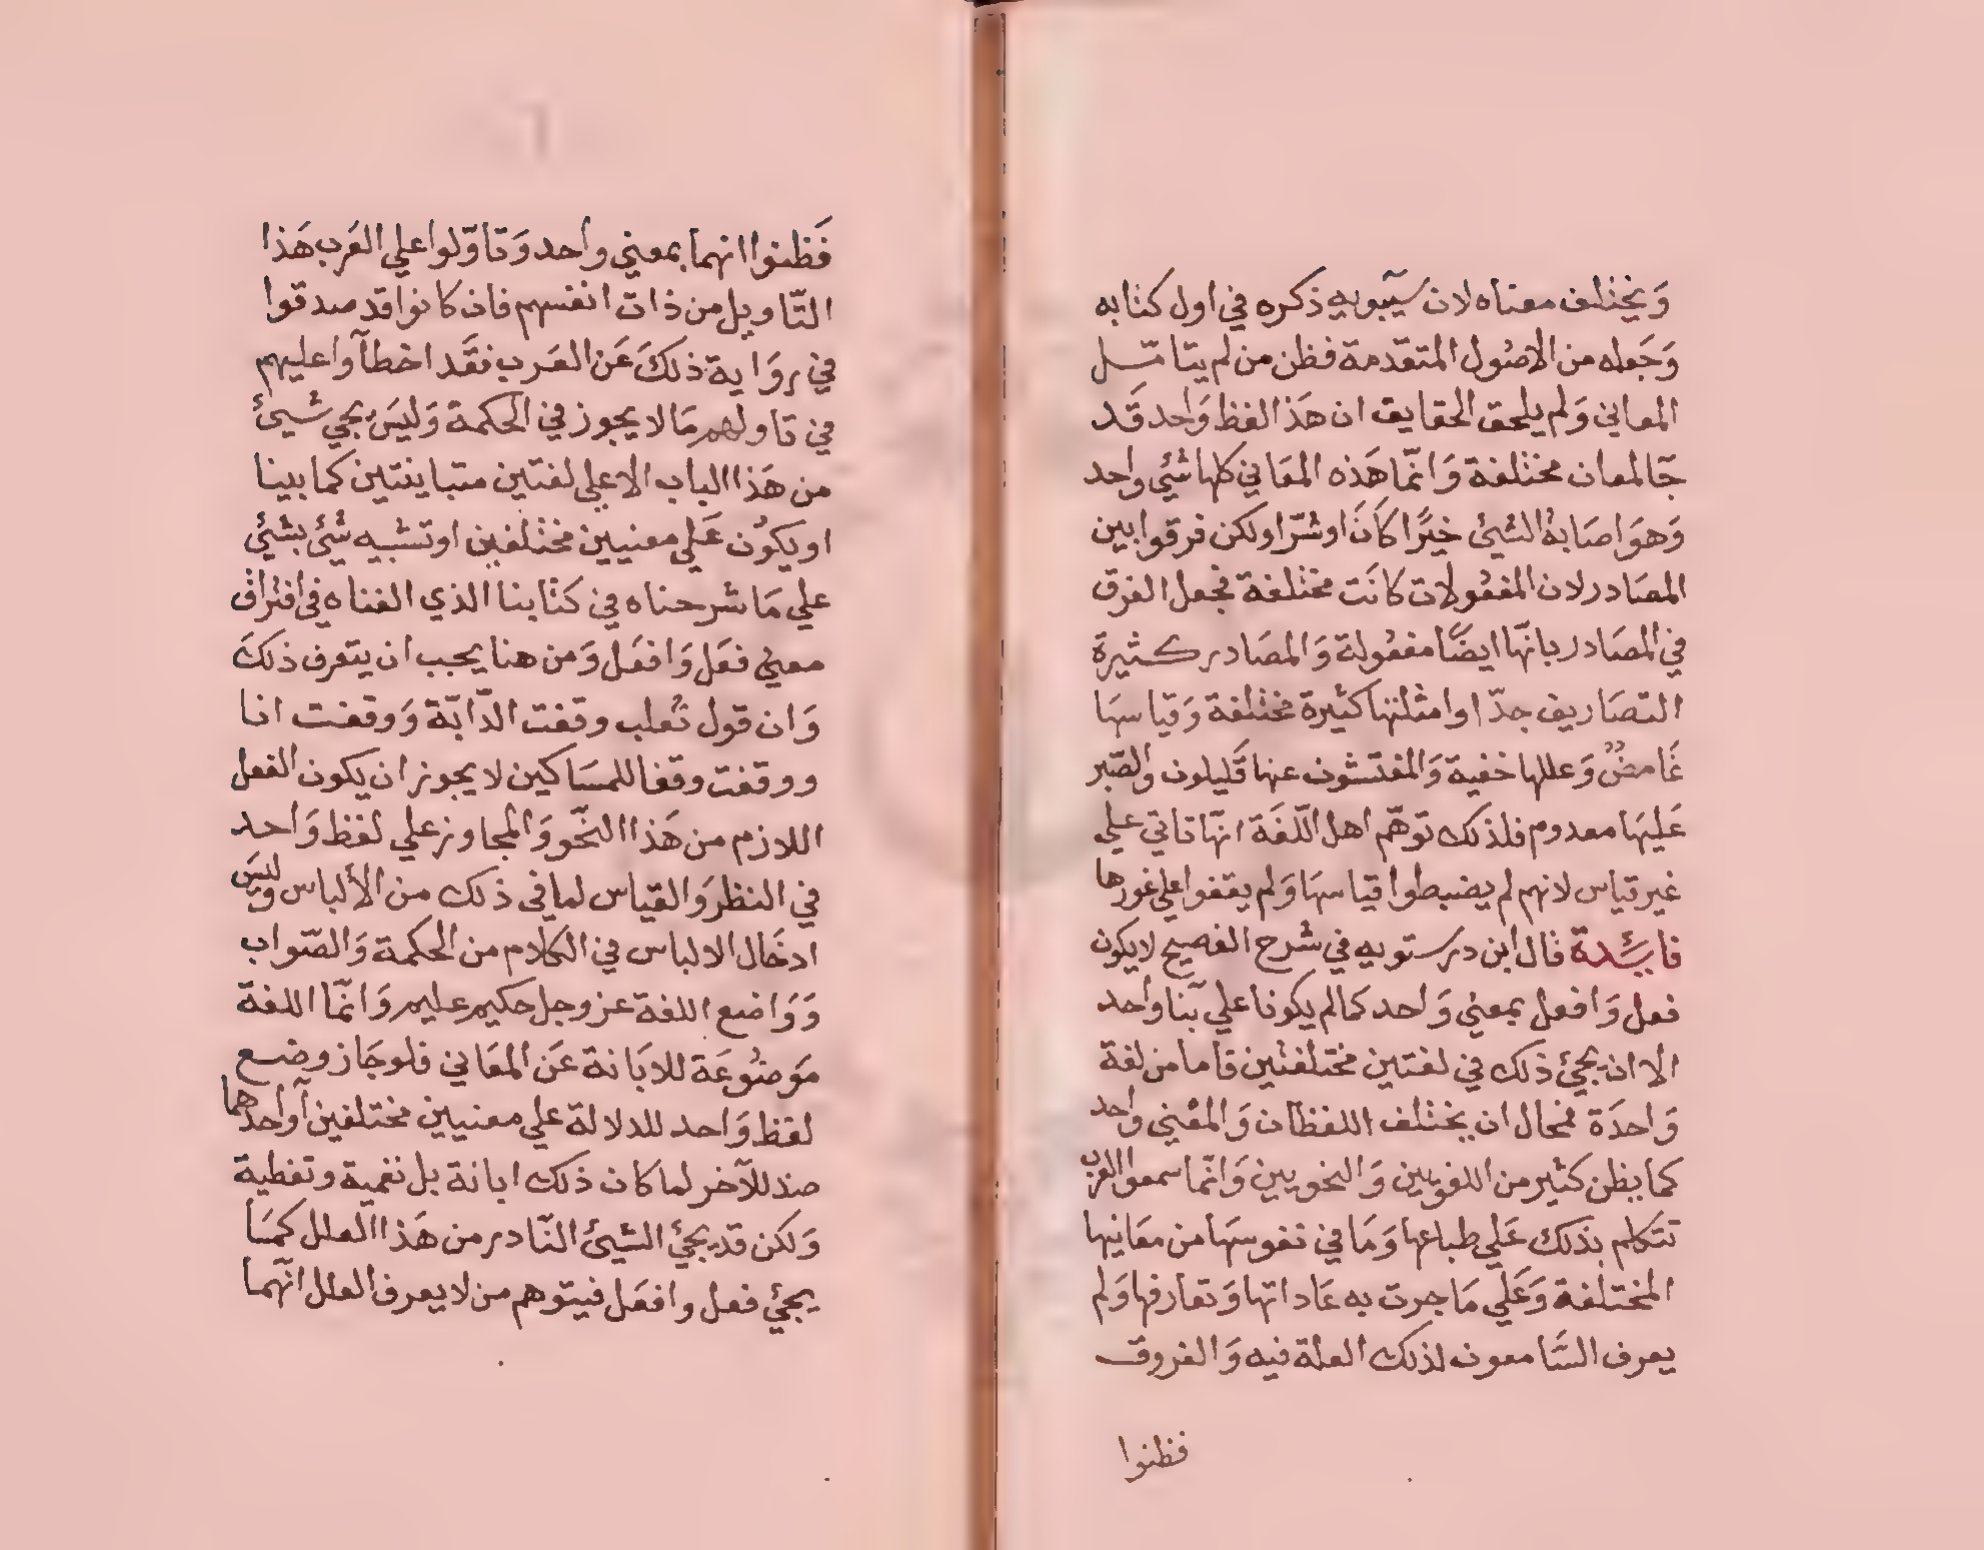 وَيختلف معناه لان سيبويه ذكره في اول كتابه
وَجَعله من الاصُول المتقدمة فظن من لم يتامّل
المعاني وَلم يلحق الحقايق ان هَذا الفظ وَاحد قَد
جَا لمعان مختلفة وَانمّا هَذه المعَاني كلها شئي واحد
وَهوَ اصَابةُ الشيئ خيرًا كَانَ او شرّا ولكن فرقوا بين
المصَادر لان المفعُولات كانَت مختلفة فجعل الفرق
في المصَادر بانّها ايضًا مفعُولة وَالمصَادر كثيرة
التصَاريف جدّا وامثلتها كثيرة مختلفة وَقياسهَا
غَامضٌ وَعللها خفية وَالمفتشون عنها قَليلون والصّبر
عَليهَا معدوم فلذلك توهّم اهل اللّغَة انهّا تاتي علي
غير قياس لانهم لم يضبطوا قياسهَا وَلم يقفوا علي غورها
فايئَدة قال ابن درستويه في شرح الفصيح لا يكون
فعل وَافعل بمعني وَاحد كما لم يكونا علي بنا واحد
الا ان يجيئ ذلك في لغتين مختلفتين فاما من لغة
وَاحدَة فمحال ان يختلف اللفظان وَالمعْني واحد
كما يظن كثير من اللغويين وَالنحويين وَانمّا سمعوا العرب
تتكلم بذلك عَلي طباعها وَمَا في نفوسهَا من معَانيها
المختلفة وَعَلي مَا جرت به عَاداتها وَتعارفها وَلم
يعرف السَّامعون لذلك العلة فيه وَالفروق
فظنوا
فَظنوا انهما بمعني واحد وَتاوّلوا علي العَرب هَذا
التّاويل من ذات انفسهم فان كانوا قد صدقوا
في روَاية ذلكَ عَن العَرب فقَد اخطآوا عليهم
في تاولهم مَا لا يجوز في الحكمة وَليسَ يجي شيئ
من هَذا الباب الا علي لغتين متباينتين كما بينا
او يكوُن عَلي معنيين مختلفين او تشبيه شئي بشئي
علي مَا شرحناه في كتابنا الذي الفناه في افتراق
معني فعَل وَافعَل وَمن هنا يجب ان يتعرف ذلكَ
وَان قول ثعلب وقفت الدّابّة وَوقفت انا
ووقفت وقفا للمسَاكين لا يجوز ان يكون الفعل
اللازم من هَذا النحّو وَالمجاوز علي لفظ وَاحد
في النظر وَالقياس لما في ذلك من الألباس وليسَ
ادخَال الالباس في الكلام من الحكمة وَالصّواب
وَوَاضع اللغة عز وجل حكيم عليم وَانمّا اللغة
مَوضُوعَة للابَانة عَن المعَاني فلو جَاز وضع
لفظ وَاحد للدلالة علي معنيين مختلفين آواحدهما
ضد للآخر لما كان ذلك ابانة بل نغمية وتغطية
وَلكن قد يجئ الشيئ النّادر من هَذا العلل كمَا
يجئ فعل وافعَل فيتوهم من لا يعرف العلل انّهما